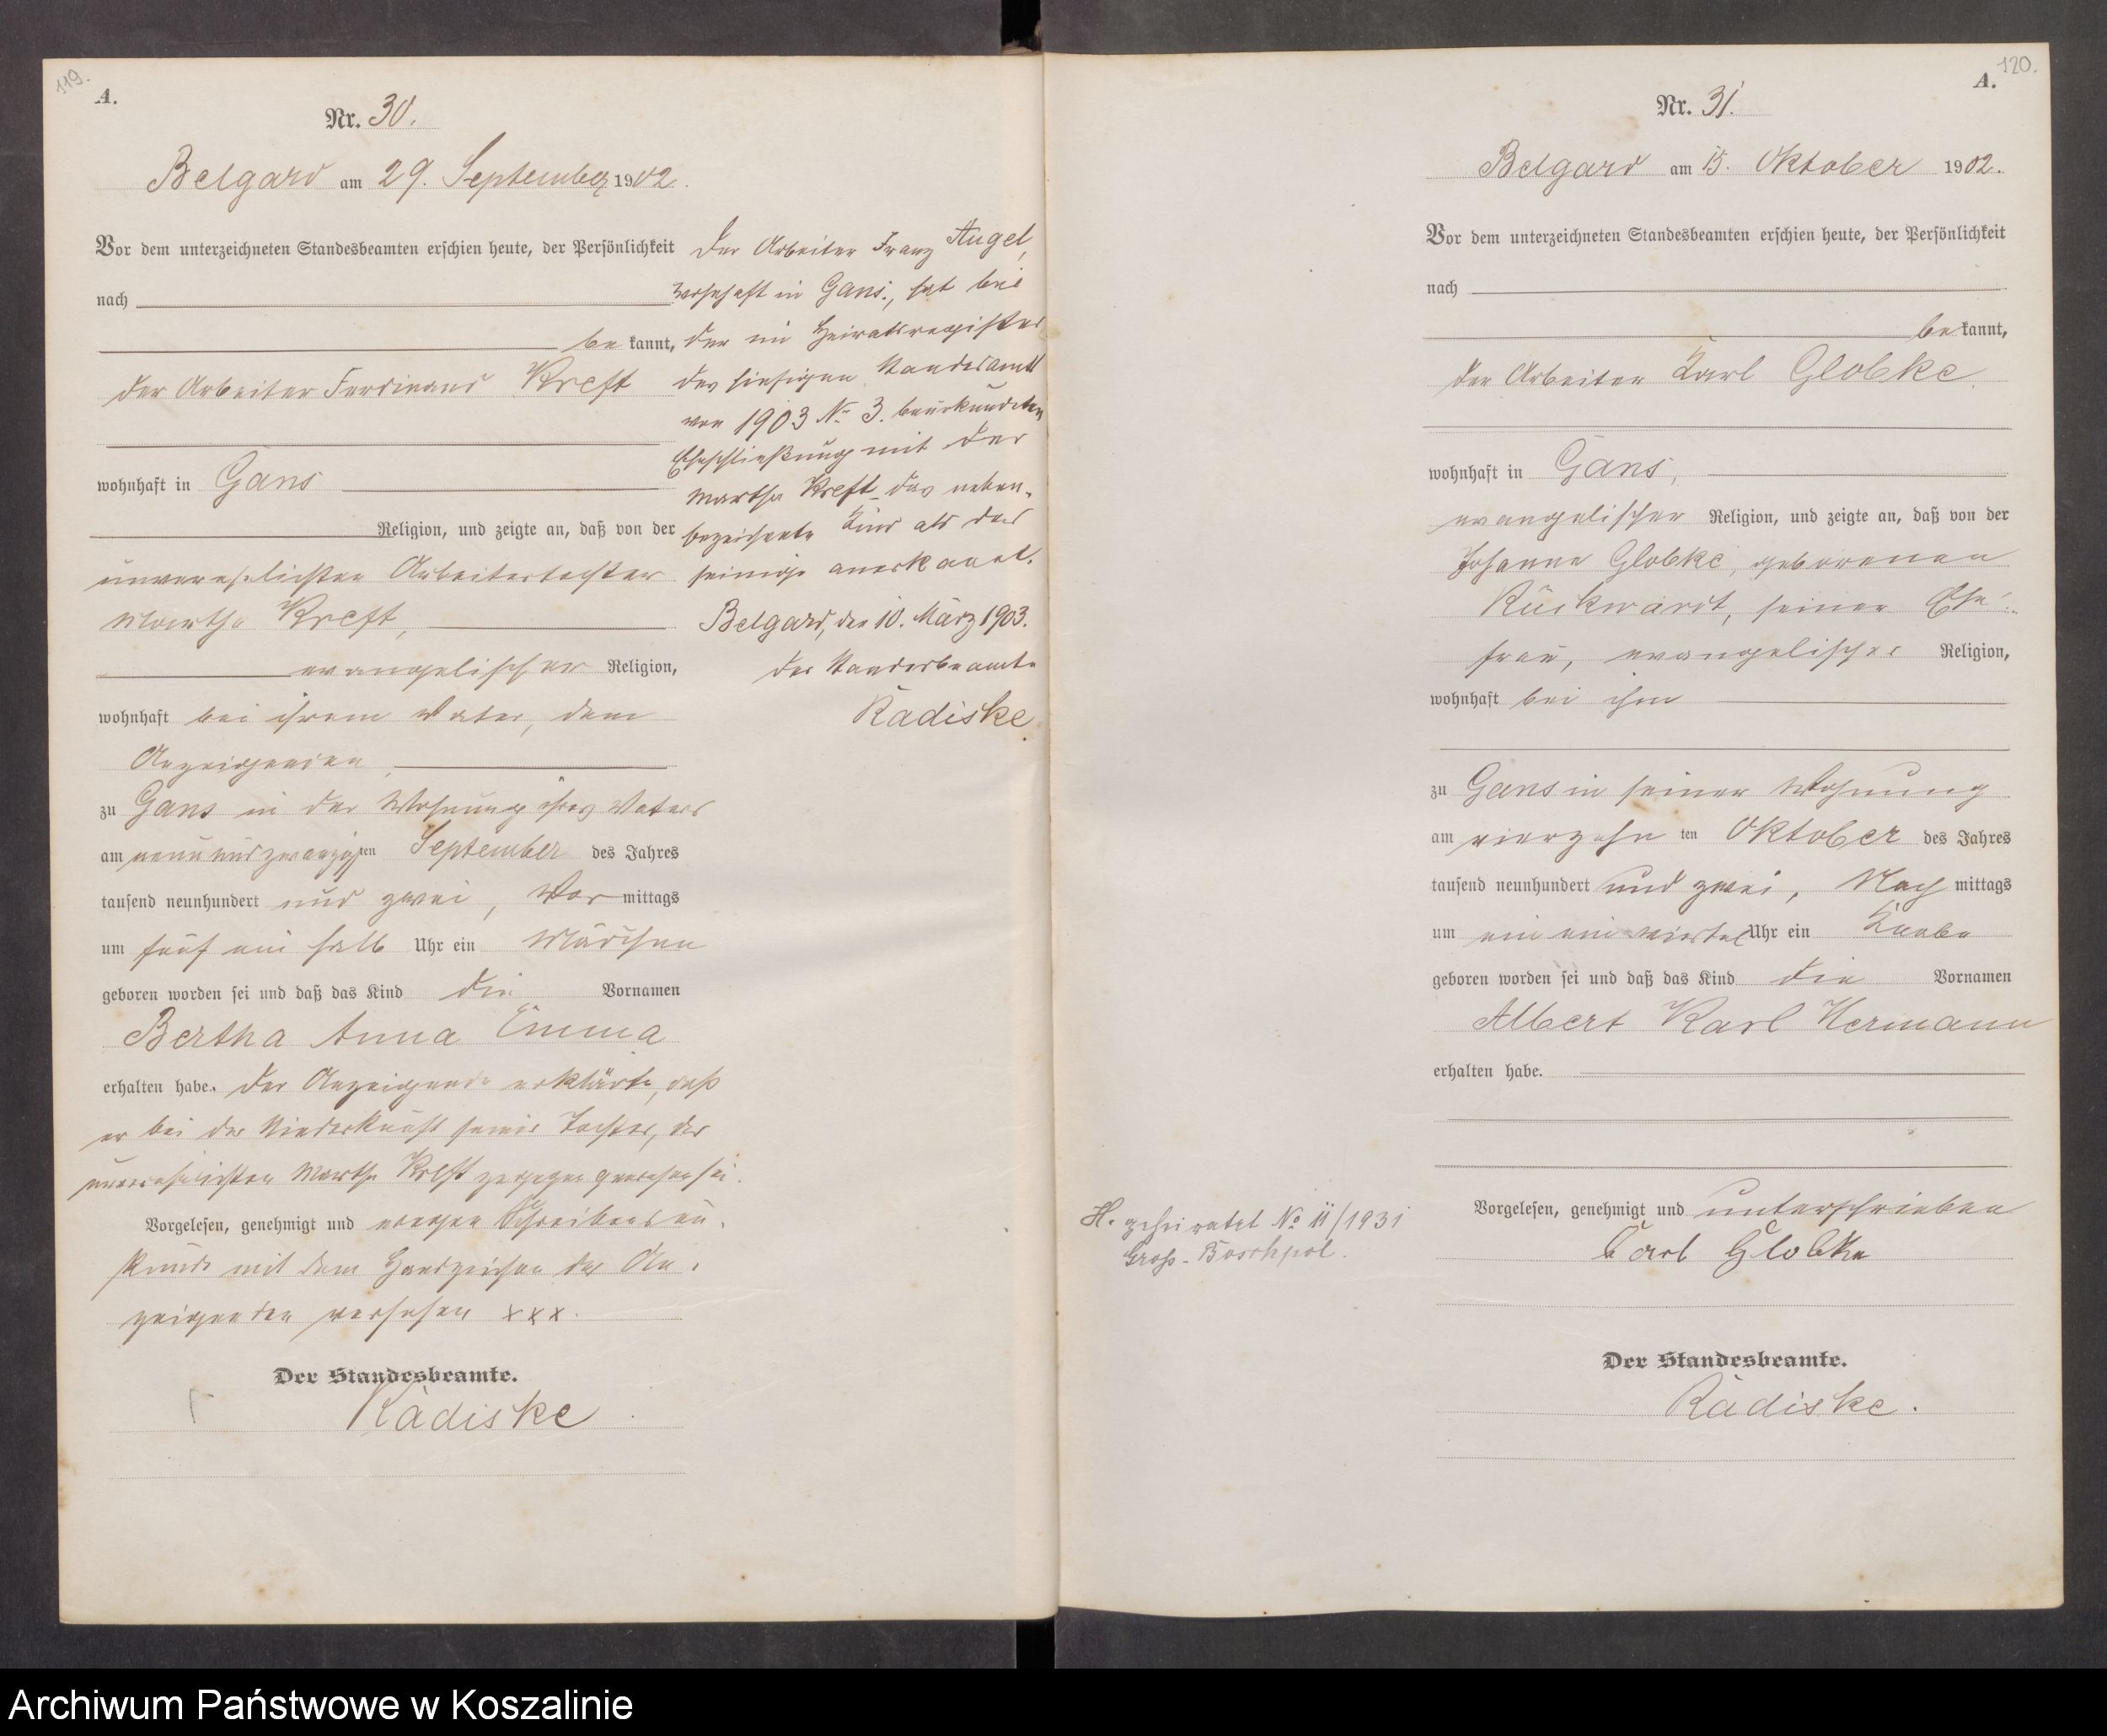 119.
A.
Nr. 30.
Belgard am 29. September 1902.
Vor dem unterzeichneten Standesbeamten erschien heute, der Persönlichkeit
nach
be kannt,
der Arbeiter Ferdinand Kreft
wohnhaft in Gans
Religion, und zeigte an, daß von der
unverehelichten Arbeitertochter
Martha Kreft,
evangelischer Religion,
wohnhaft bei ihrem Vater, dem
Anzeigenden,
zu Gans in der Wohnung ihres Vaters
am neunundzwanzigsten September des Jahres
tausend neunhundert und zwei, Vor mittags
um fünf ein halb Uhr ein Mädchen
geboren worden sei und daß das Kind die Vornamen
Bertha Anna Emma
erhalten habe. Der Anzeigende erklärte, daß
er bei der Niederkunft seiner Tochter, der
unverehelichten Martha Kreft zugegen gewesen sei.
Vorgelesen, genehmigt und wegen Schreibensun-
kunde mit dem Handzeichen des An-
zeigenden versehen xxx.
Der Standesbeamte.
Radiske
Der Arbeiter Franz Augel,
wohnhaft in Gans, hat bei
der im Heiratsregister
des hiesigen Standesamts
von 1903 No 3. beurkundeten
Eheschließung mit der
Martha Kreft das neben-
bezeichnete Kind als das
seinige anerkannt.
Belgard, den 10. März 1903.
Der Standesbeamte
Radiske
120.
A.
Nr. 31.
Belgard am 15. Oktober 1902.
Vor dem unterzeichneten Standesbeamten erschien heute, der Persönlichkeit
nach
be kannt,
der Arbeiter Karl Globke
wohnhaft in Gans,
evangelischer Religion, und zeigte an, daß von der
Johanne Globke, geborenen
Rückwardt, seiner Ehe-
frau, evangelischer Religion,
wohnhaft bei ihm
zu Gans in seiner Wohnung
am vierzehn ten Oktober des Jahres
tausend neunhundert und zwei, Nach mittags
um ein ein viertel Uhr ein Knabe
geboren worden sei und daß das Kind die Vornamen
Albert Karl Hermann
erhalten habe.
Vorgelesen, genehmigt und unterschrieben
Carl Globke
Der Standesbeamte.
Radiske.
H. geheiratet No 11/1931
Groß-Boschpol.
Archiwum Państwowe w Koszalinie